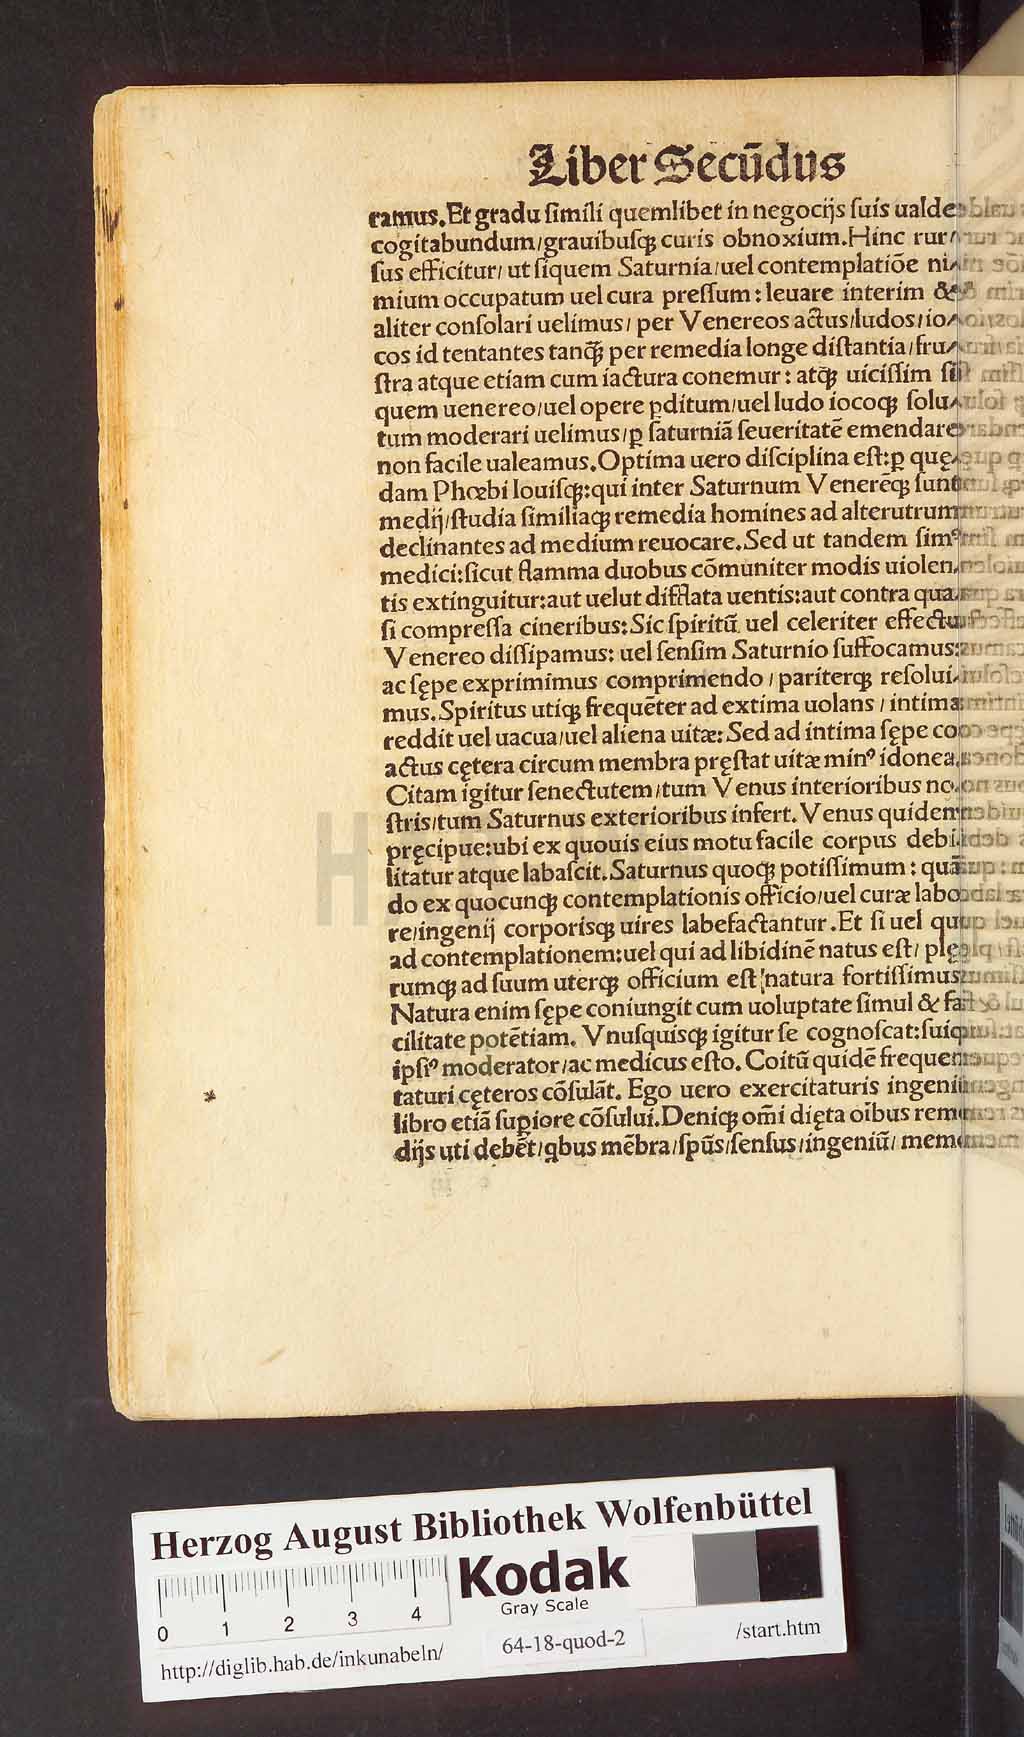 Liber Secūdus
ramus. Et gradu simili quemlibet in negocijs suis ualde
cogitabundum/grauibusqꝫ curis obnoxium. Hinc rur/
sus efficitur/ ut siquem Saturnia/uel contemplatiōe ni/
mium occupatum uel cura pressum: leuare interim &
aliter consolari uelimus/ per Venereos actus/ludos/io/
cos id tentantes tanqꝫ̄ per remedia longe distantia/fru/
stra atque etiam cum iactura conemur: atqꝫ uicissim si
quem uenereo/uel opere ꝑditum/uel ludo iocoqꝫ solu/
tum moderari uelimus/ꝑ saturniā seueritatē emendare
non facile ualeamus. Optima uero disciplina est: ꝑ quę/
dam Phœbi Iouisqꝫ: qui inter Saturnum Venerēqꝫ sunt
medij/studia similiaqꝫ remedia homines ad alterutrum
declinantes ad medium reuocare. Sed ut tandem simꝰ
medici: sicut flamma duobus cōmuniter modis uiolen/
tis extinguitur: aut uelut difflata uentis: aut contra qua
si compressa cineribus: Sic spiritū uel celeriter effectu
Venereo dissipamus: uel sensim Saturnio suffocamus:
ac sępe exprimimus comprimendo/ pariterqꝫ resolui/
mus. Spiritus utiqꝫ frequēter ad extima uolans/ intima
reddit uel uacua/uel aliena uitæ: Sed ad intima sępe co
actus cętera circum membra pręstat uitæ minꝰ idonea.
Citam igitur senectutem/tum Venus interioribus no/
stris/tum Saturnus exterioribus infert. Venus quidem
pręcipue: ubi ex quouis eius motu facile corpus debi/
litatur atque labascit. Saturnus quoqꝫ potissimum: quā
do ex quocunqꝫ contemplationis officio/uel curæ labo
re/ingenij corporisqꝫ uires labefactantur. Et si uel qui
ad contemplationem: uel qui ad libidinē natus est/ plę
rumqꝫ ad suum uterqꝫ officium est natura fortissimus
Natura enim sępe coniungit cum uoluptate simul & fa
cilitate potētiam. Vnusquisqꝫ igitur se cognoscat: suiqꝫ
ipsiꝰ moderator/ac medicus esto. Coitū quidē frequen
taturi cęteros cōsulāt. Ego uero exercitaturis ingeniū
libro etiā suꝑiore cōsului. Deniqꝫ om̄i dięta oībus reme
dijs uti debēt/qbus mēbra/spūs/sensus/ingeniū/ memo
Herzog August Bibliothek Wolfenbüttel
Kodak
Gray Scale
0 1 2 3 4
http://diglib.hab.de/inkunabeln/ 64-18-quod-2 /start.htm